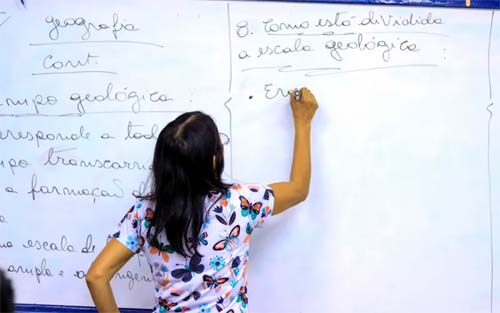 geografia
Cont.
mpo geológico
responde a tod
po transcorri
a formação d
a
o escala de
amplo e
8. Como está dividida
a escala geológica :
• Er